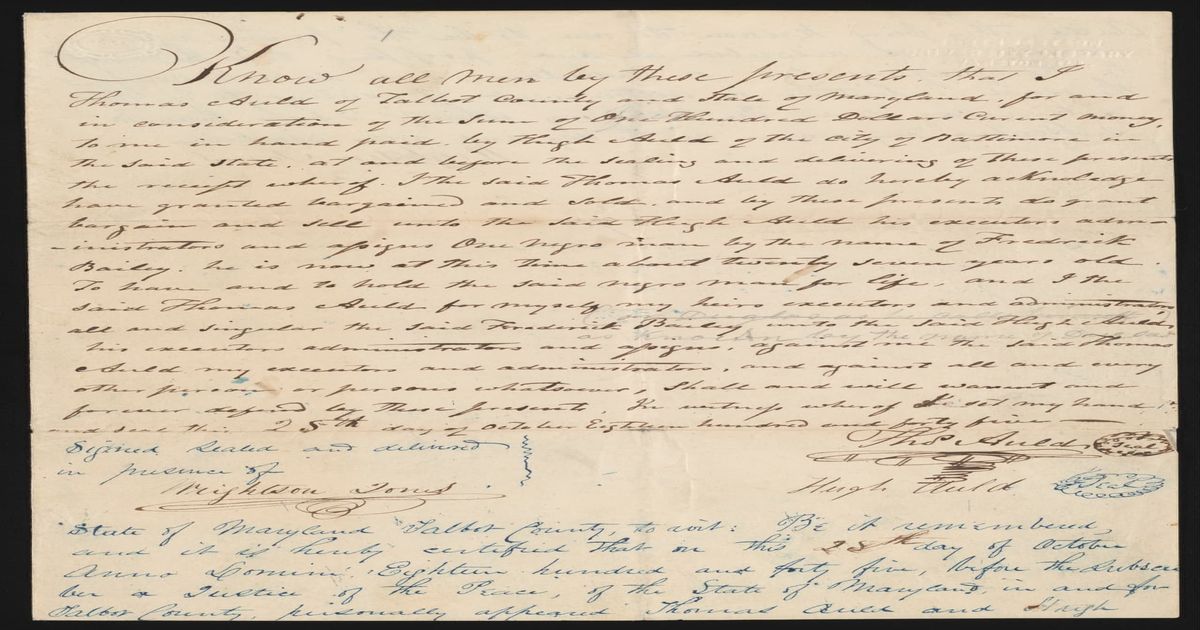 Know all men by these presents, that I
Thomas Auld of Talbot County and State of Maryland, for and
in consideration of the Sum of One Hundred Dollars Current money,
to me in hand paid, by Hugh Auld of the City of Baltimore in
the said State, at and before the sealing and delivering of these presents
the receipt whereof, I the said Thomas Auld do hereby acknowledge
have granted bargained and Sold, and by these presents do grant
bargain and sell unto the said Hugh Auld his executors admin-
-inistrators and assigns One negro man by the name of Fredrick
Bailey. he is now at this time about twenty seven years old.
To have and to hold the said negro man for life, and I the
said Thomas Auld for myself my heirs executors and administrators,
all and singular the said Fredrick Bailey unto the said Hugh Auld,
his executors administrators and assigns, against me the said Thomas
Auld my executors and administrators, and against all and every
other person or persons whatsoever, Shall and will warrant and
forever defend by these presents, In witness whereof I set my hand
and seal this 25th day of October Eighteen hundred and forty five
Thos Auld Seal
Signed sealed and delivered
in presence of
Wrightson Jones
Hugh Auld Seal
State of Maryland Talbot County, to wit: Be it remembered
and it is hereby certified that on this 25th day of October
Anno Domini, Eighteen hundred and forty five, before the Subscri
ber a Justice of the Peace, of the State of Maryland, in and for
Talbot County, personally appeared Thomas Auld and Hugh